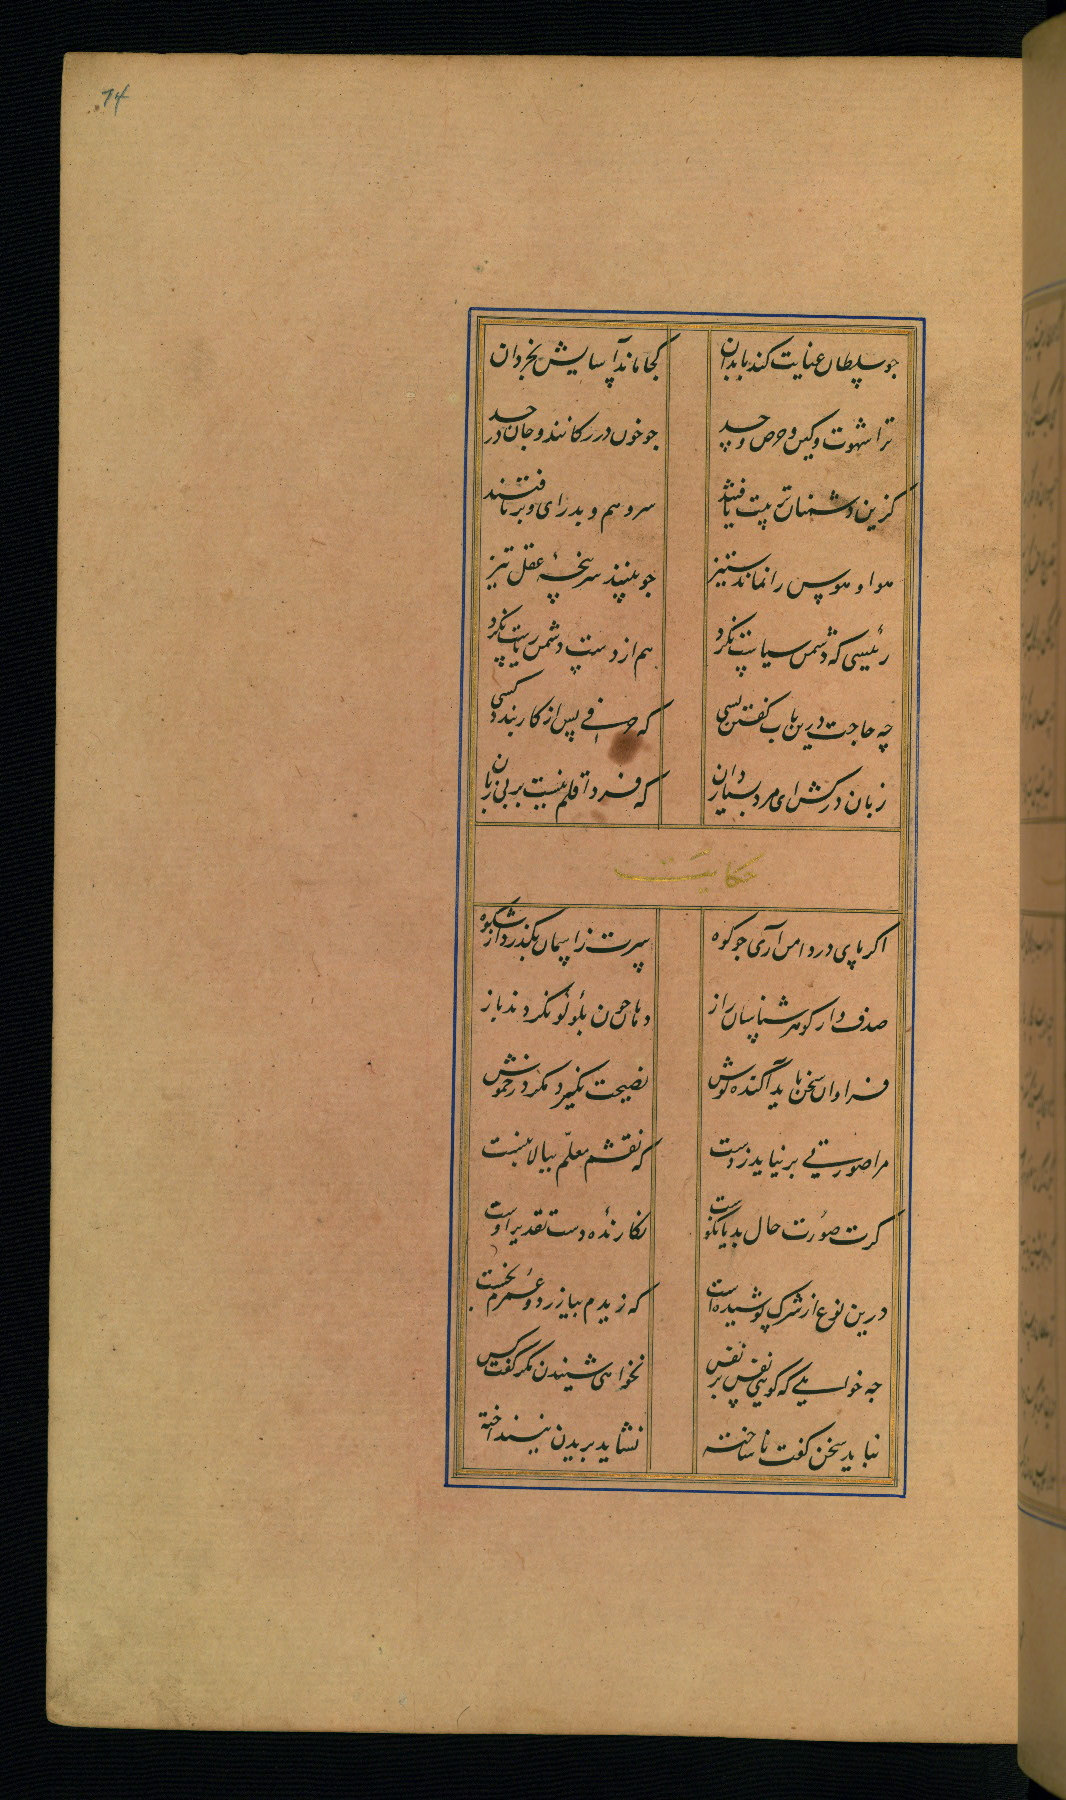 74
جو سلطان عنایت کند با بدان کجا ماند آسایش بخردان
ترا شهوت و کین و حرص و حسد جو خون در رکانند و جان در جسد
کزین دشمنان تربیت یافتند سر و هم و بد رای و بر تافتند
هوا و هوس را نماند ستیز جو بینند سرپنجهٔ عقل تیز
رئیسی که دشمن سیاست نکرد هم از دست دشمن ریاست نکرد
چه حاجت درین باب کفتن بسی که حرفی بس از کار بندد کسی
زبان درکش ای مرد بسیاردان که فردا قلم نیست بر بی زبان
حکایت
اکر پای در دامن آری جو کوه سرت ز اسمان بکذرد از شکوه
صدف وار کوهر شناسان راز دهان جون بلؤلؤ نکردند باز
فراوان سخن باید آکنده کوش نصیحت نکیرد مکر در خموش
مرا صورتی بر نیاید ز دست که نقشم معلّم ببالا نبست
کرت صورت حال بد یا نکوست نکارنده دست تقدیر اوست
درین نوع از شرک پوشیده است که زیدم بیازرد و عمرم بخست
جه خواهی که کویی نفس بر نفس نخواهی شنیدن مکر کفت کس
نباید سخن کفت ناساخته نشاید بریدن نینداخته